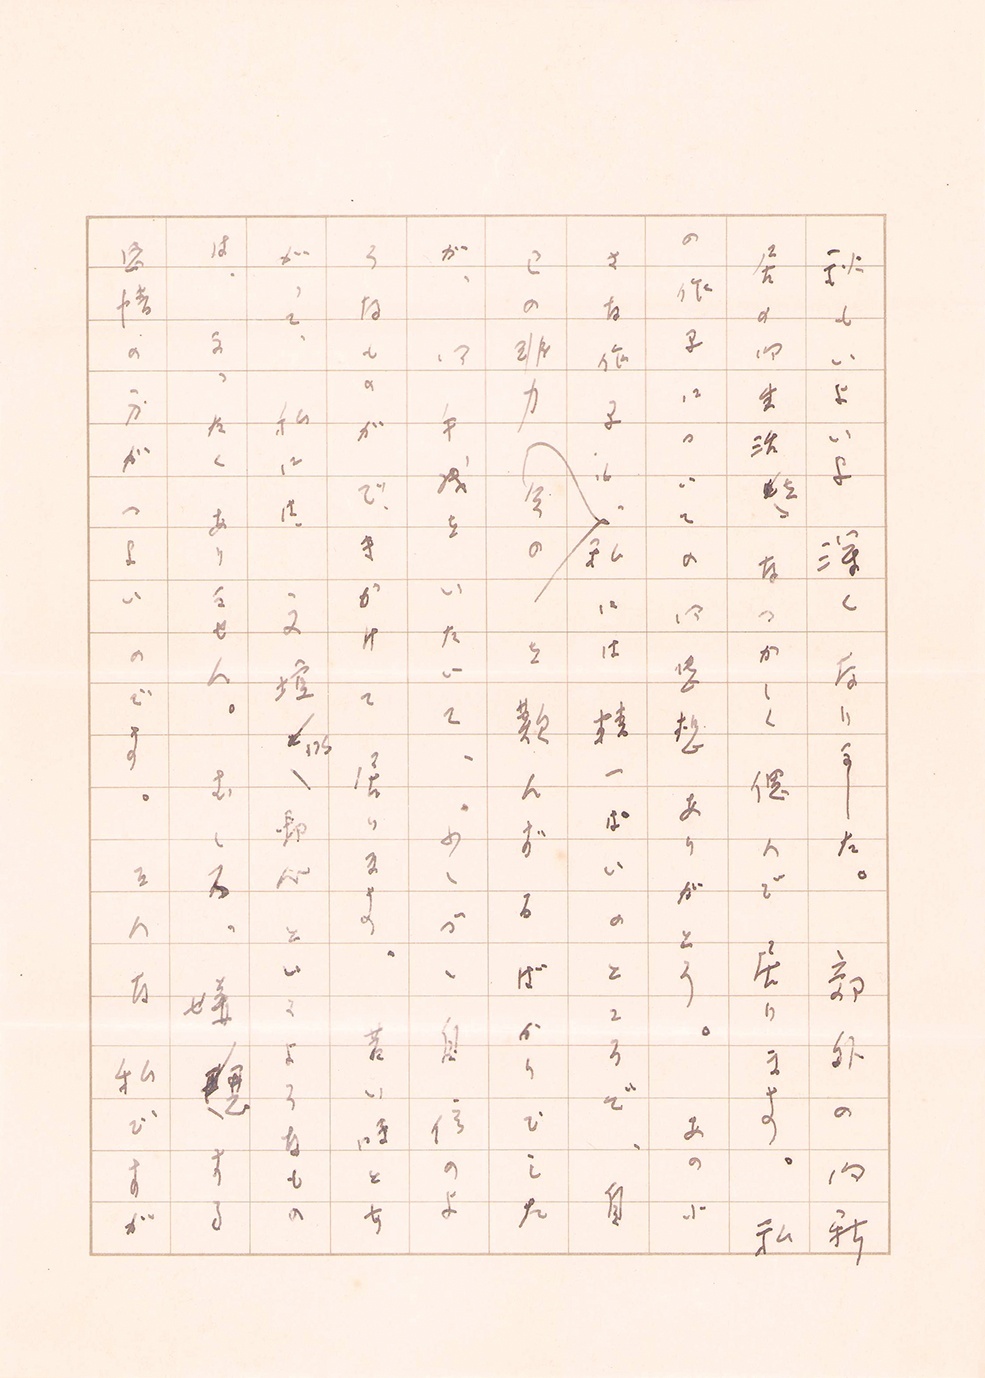 秋もいよいよ深くなりました。郊外の御新
居の御生活を なつかしく偲んで居ります。私
の作品についての御感想ありがとう。あの小
さな作品も、私には精一ぱいのところで、自
己の非力 を歎んずるばかりでした
が、御手紙をいただいて、少しづゝ自信のよ
うなものができかけて居ります。若い時とち
がって、私には、文壇的野心というようなもの
は、まったくありません。むしろ、嫌悪する
感情の方がつよいのです。そんな私ですが